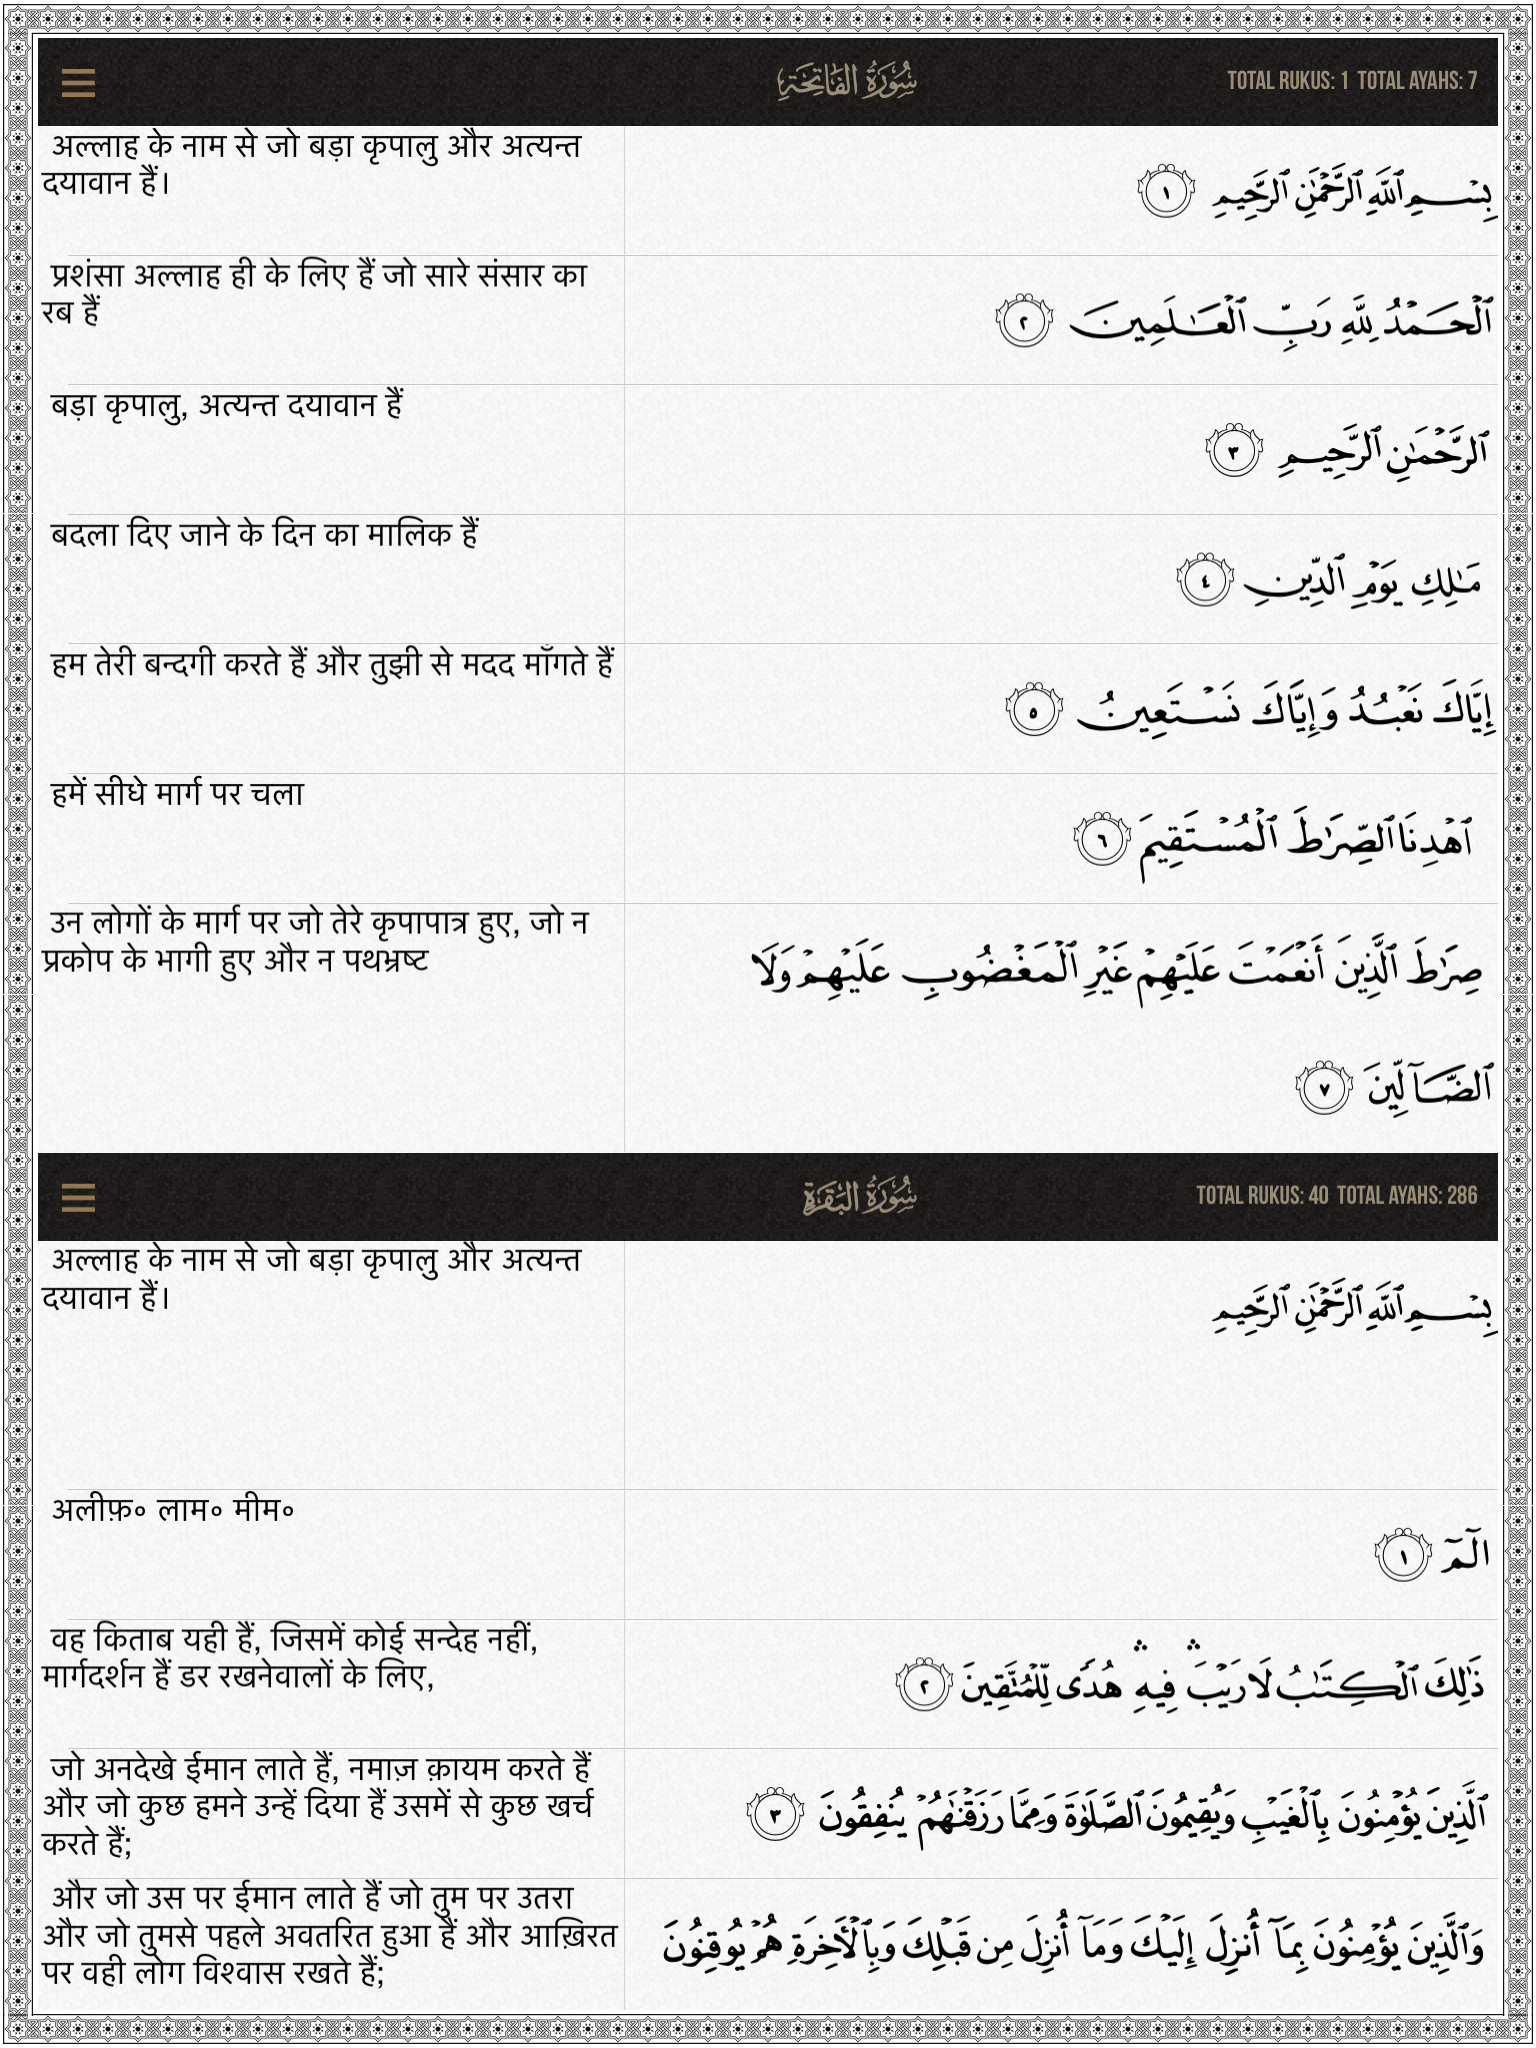 سُورَةُ الفَاتِحَةِ
TOTAL RUKUS: 1 TOTAL AYAHS: 7
अल्लाह के नाम से जो बड़ा कृपालु और अत्यन्त
दयावान हैं।
بِسْمِ ٱللَّهِ ٱلرَّحْمَٰنِ ٱلرَّحِيمِ ١
प्रशंसा अल्लाह ही के लिए हैं जो सारे संसार का
रब हैं
ٱلْحَمْدُ لِلَّهِ رَبِّ ٱلْعَٰلَمِينَ ٢
बड़ा कृपालु, अत्यन्त दयावान हैं
ٱلرَّحْمَٰنِ ٱلرَّحِيمِ ٣
बदला दिए जाने के दिन का मालिक हैं
مَٰلِكِ يَوْمِ ٱلدِّينِ ٤
हम तेरी बन्दगी करते हैं और तुझी से मदद माँगते हैं
إِيَّاكَ نَعْبُدُ وَإِيَّاكَ نَسْتَعِينُ ٥
हमें सीधे मार्ग पर चला
ٱهْدِنَا ٱلصِّرَٰطَ ٱلْمُسْتَقِيمَ ٦
उन लोगों के मार्ग पर जो तेरे कृपापात्र हुए, जो न
प्रकोप के भागी हुए और न पथभ्रष्ट
صِرَٰطَ ٱلَّذِينَ أَنْعَمْتَ عَلَيْهِمْ غَيْرِ ٱلْمَغْضُوبِ عَلَيْهِمْ وَلَا
ٱلضَّآلِّينَ ٧
سُورَةُ البَقَرَةِ
TOTAL RUKUS: 40 TOTAL AYAHS: 286
अल्लाह के नाम से जो बड़ा कृपालु और अत्यन्त
दयावान हैं।
بِسْمِ ٱللَّهِ ٱلرَّحْمَٰنِ ٱلرَّحِيمِ
अलीफ़॰ लाम॰ मीम॰
الٓمٓ ١
वह किताब यही हैं, जिसमें कोई सन्देह नहीं,
मार्गदर्शन हैं डर रखनेवालों के लिए,
ذَٰلِكَ ٱلْكِتَٰبُ لَا رَيْبَ ۛ فِيهِ ۛ هُدًى لِّلْمُتَّقِينَ ٢
जो अनदेखे ईमान लाते हैं, नमाज़ क़ायम करते हैं
और जो कुछ हमने उन्हें दिया हैं उसमें से कुछ खर्च
करते हैं;
ٱلَّذِينَ يُؤْمِنُونَ بِٱلْغَيْبِ وَيُقِيمُونَ ٱلصَّلَوٰةَ وَمِمَّا رَزَقْنَٰهُمْ يُنفِقُونَ ٣
और जो उस पर ईमान लाते हैं जो तुम पर उतरा
और जो तुमसे पहले अवतरित हुआ हैं और आख़िरत
पर वही लोग विश्वास रखते हैं;
وَٱلَّذِينَ يُؤْمِنُونَ بِمَآ أُنزِلَ إِلَيْكَ وَمَآ أُنزِلَ مِن قَبْلِكَ وَبِٱلْأَخِرَةِ هُمْ يُوقِنُونَ